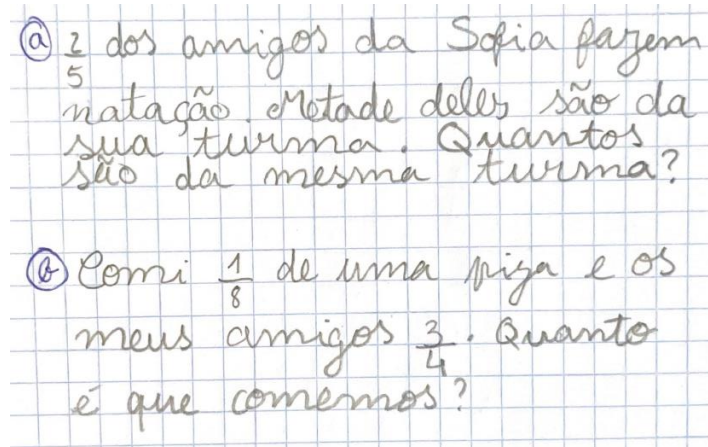 a 2/5 dos amigos da Sofia fazem
natação. Metade deles são da
sua turma. Quantos
são da mesma turma?
b Comi 1/8 de uma piza e os
meus amigos 3/4. Quanto
é que comemos?